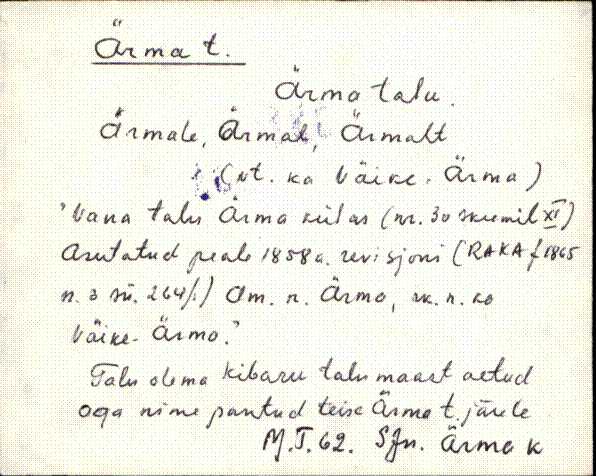 Ärma t.
Ärma talu.
Ärmale, Ärmal, Ärmalt
(vt. ka Väike-Ärma)
"Vana talu Ärma külas (nr. 30 skeemil XI)
Asutatud peale 1858 a. revisjoni (RAKA f 1865
n. 3 sü. 264/1) Am. n. Ärma, rk. n. ka
Väike-Ärma."
Talu olema Kibaru talu maast aetud
aga nime pantud teise Ärma t. järele
M.T. 62. Sjn. Ärma k